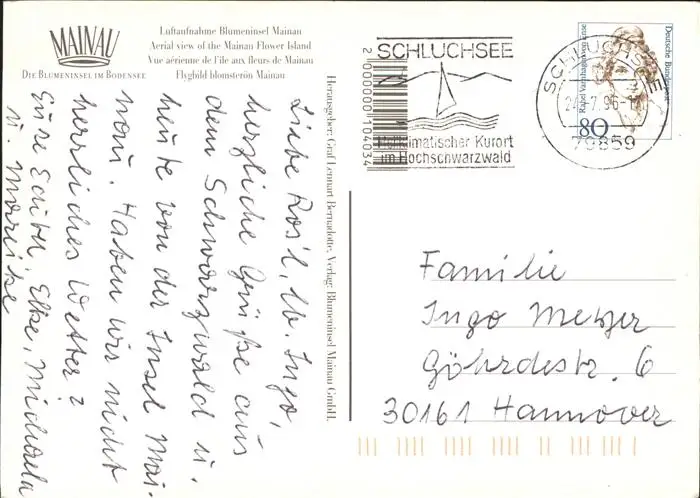 MAINAU
DIE BLUMENINSEL IM BODENSEE
Luftaufnahme Blumeninsel Mainau
Aerial view of the Mainau Flower Island
Vue aérienne de l'île aux fleurs de Mainau
Flygbild blomsterön Mainau
Liebe Ros'l, lb. Ingo,
herzliche Grüße aus
dem Schwarzwald u.
heute von der Insel Mai-
nau. Haben wir nicht
herrliches Wetter?
Eure Edith, Elke, Michaela
u. Mareike
Herausgeber: Graf Lennart Bernadotte, Verlag: Blumeninsel Mainau GmbH.
2 000000 104034
SCHLUCHSEE
Heilklimatischer Kurort
im Hochschwarzwald
SCHLUCHSEE
24.-7.96-1
79859
Deutsche Bundespost
Rahel Varnhagen von Ense
80
Familie
Ingo Metzger
Göhrdestr. 6
30161 Hannover